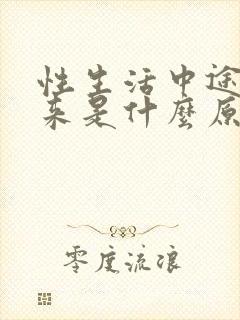 性生活中途
来是什麼原
零度流浪